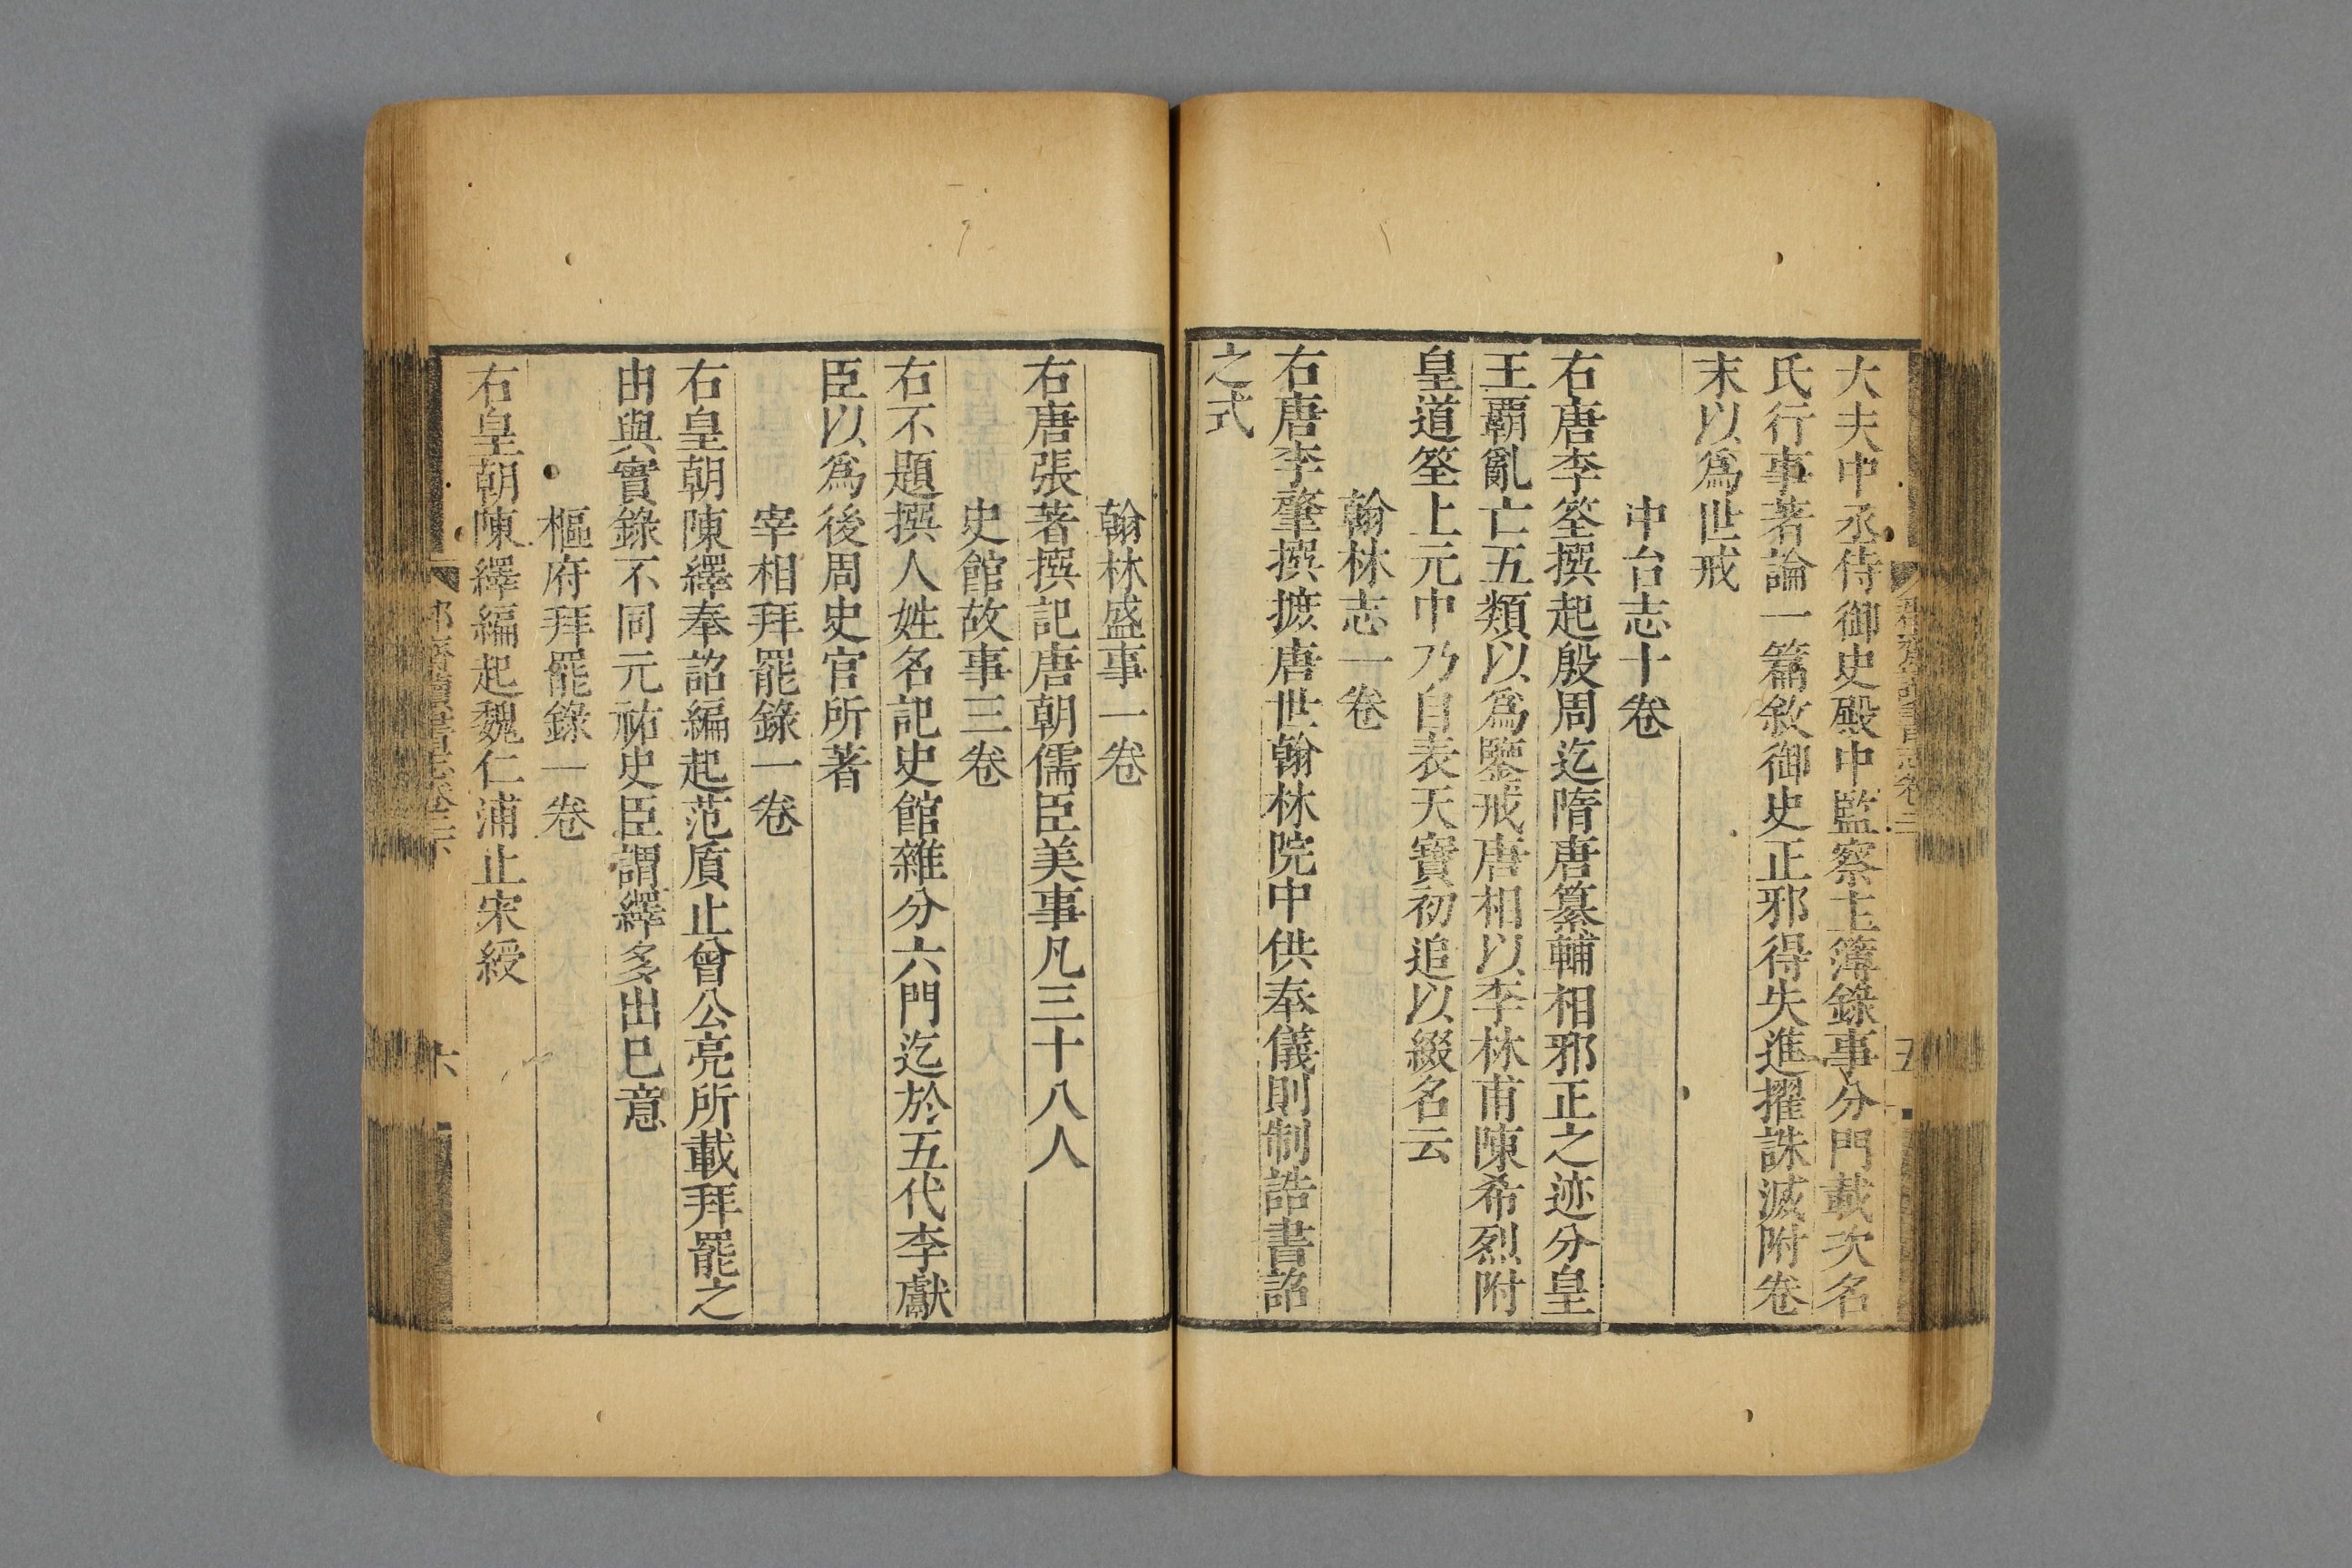 大夫中丞侍御史殿中監察主簿錄事分門載次名
氏行事著論一篇敘御史正邪得失進擢誅滅附卷
末以爲世戒
中台志十卷
右唐李筌撰起殷周迄隋唐纂輔相邪正之迹分皇
王霸亂亡五類以爲鑒戒唐相以李林甫陳希烈附
皇道筌上元中乃自表天寶初追以綴名云
翰林志一卷
右唐李肇撰摭唐世翰林院中供奉儀則制誥書詔
之式
翰林盛事一卷
右唐張著撰記唐朝儒臣美事凡三十八人
史館故事三卷
右不題撰人姓名記史館雜分六門迄於五代李獻
臣以爲後周史官所著
宰相拜罷錄一卷
右皇朝陳繹奉詔編起范質止曾公亮所載拜罷之
由與實錄不同元祐史臣謂繹多出己意
樞府拜罷錄一卷
右皇朝陳繹編起魏仁浦止宋綬
六